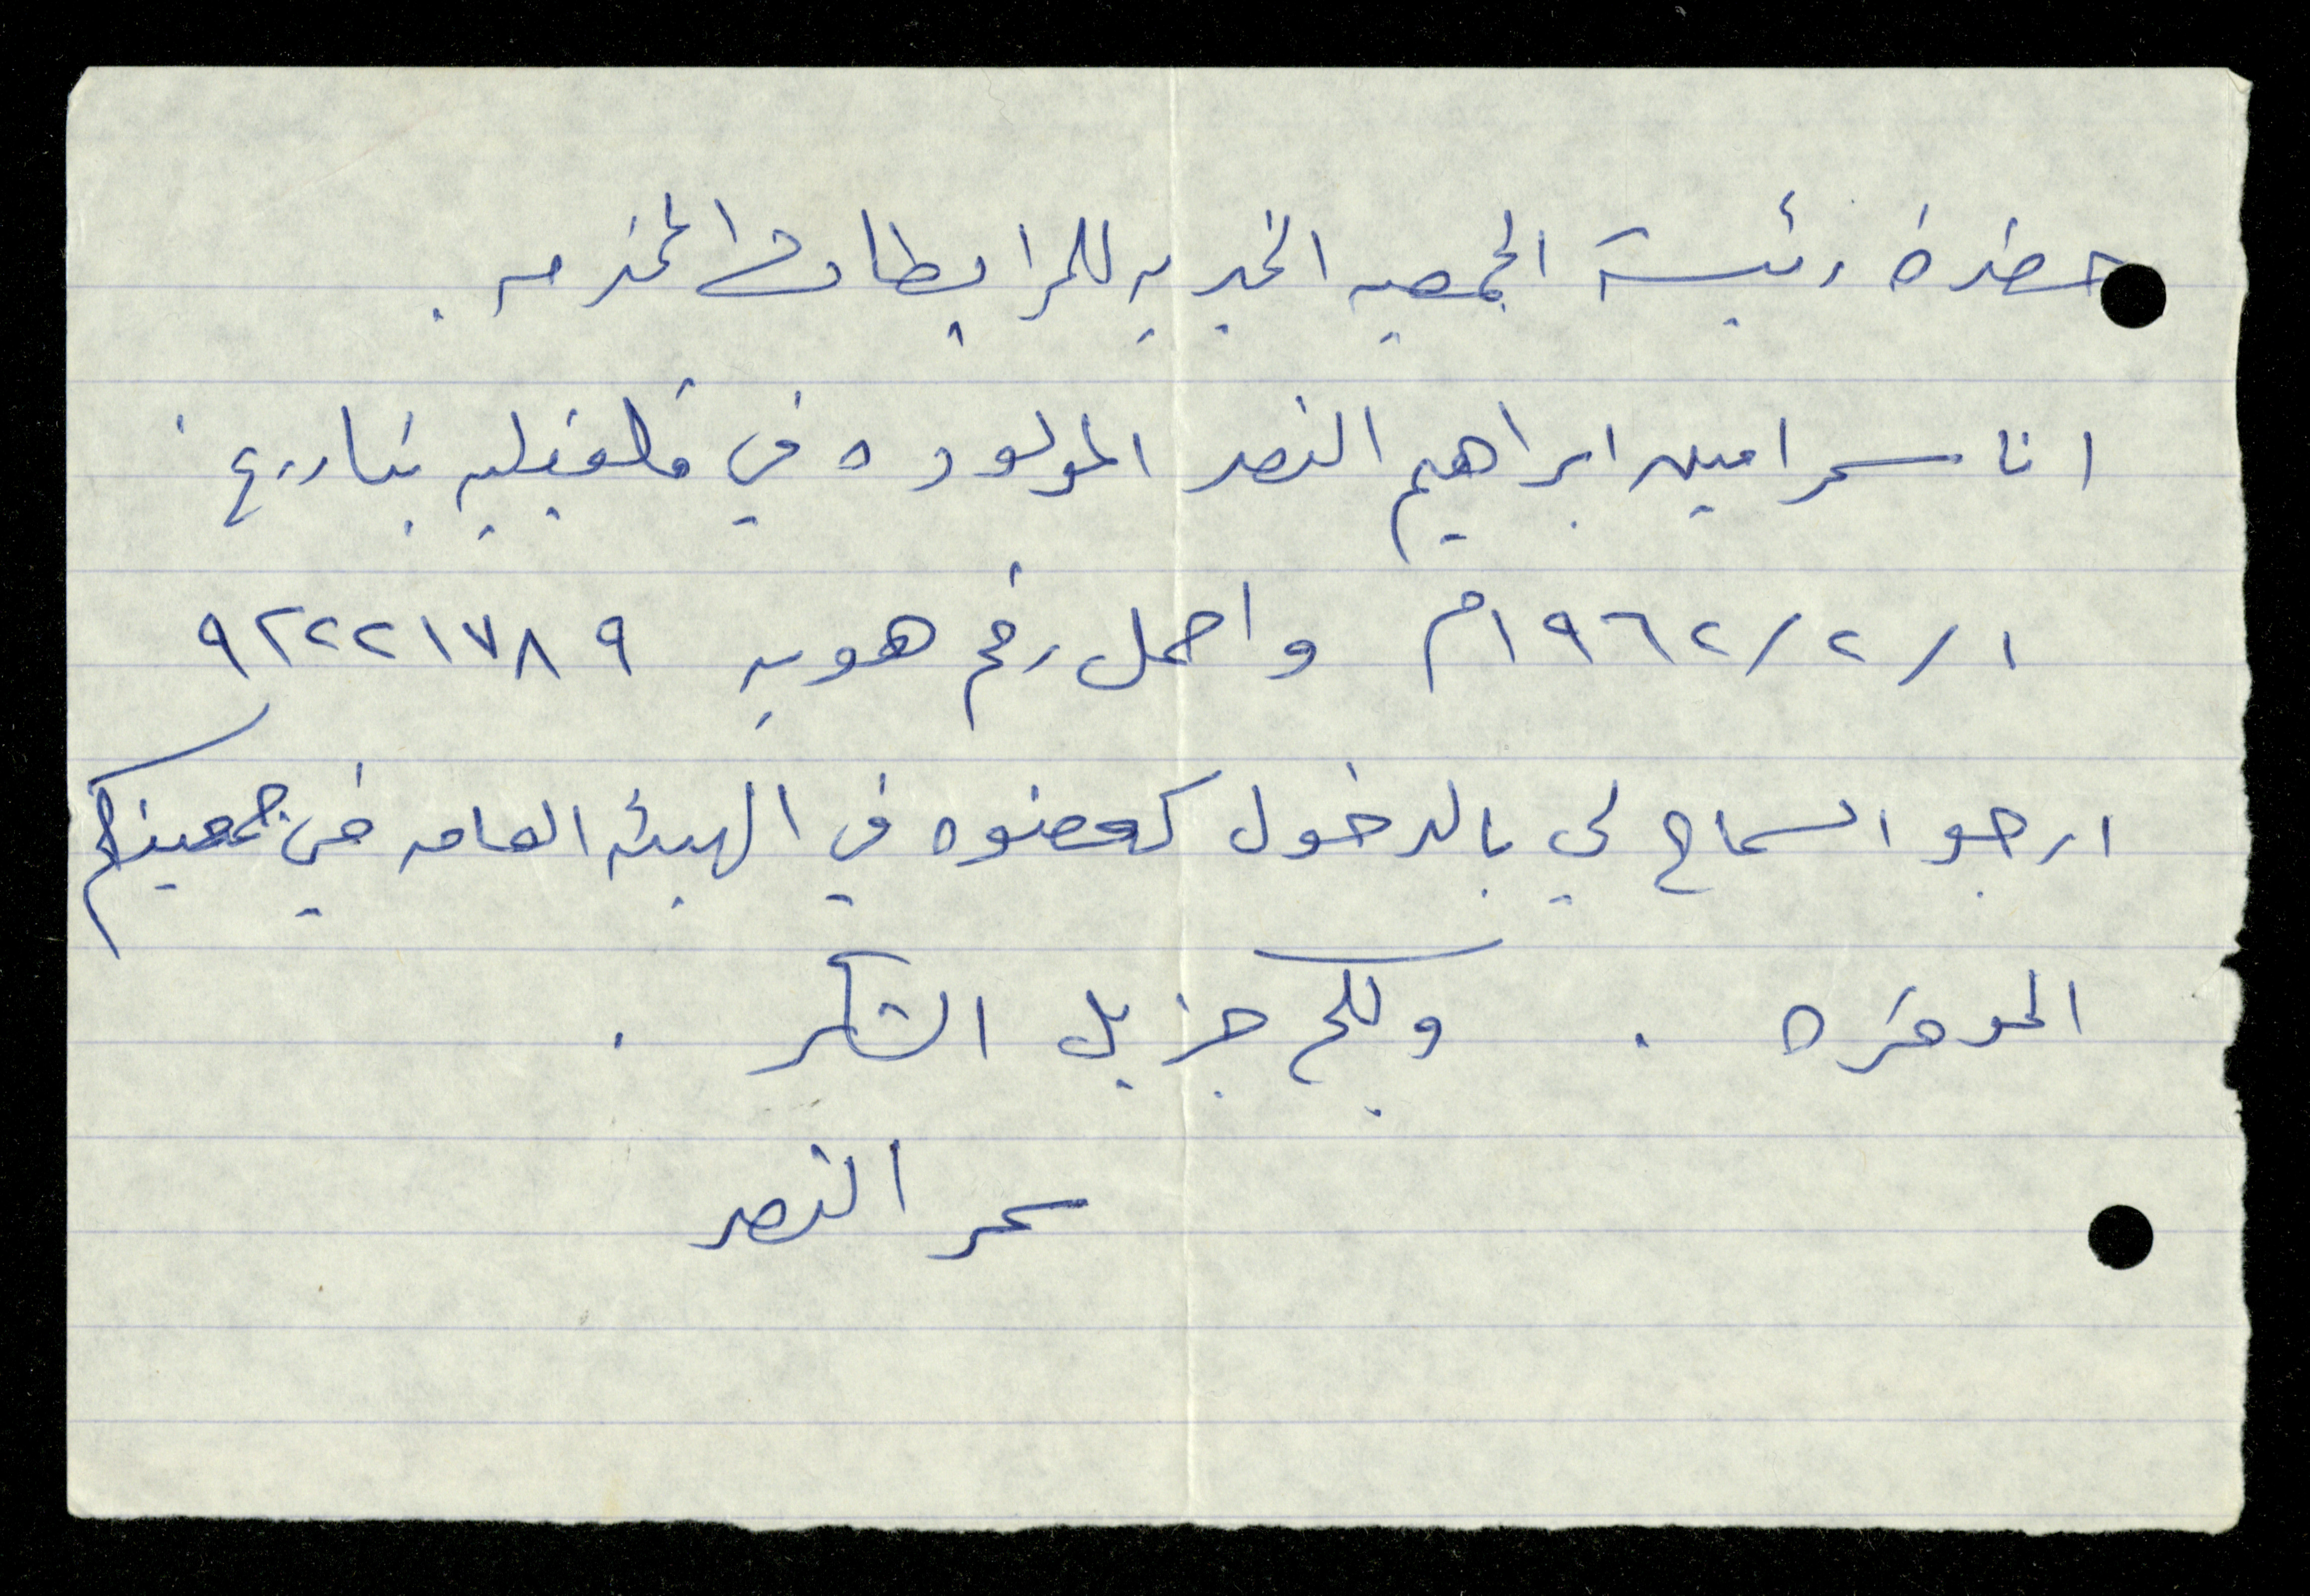 حضرة رئيسة الجمعيه الخيريه للمرابطات المحترمه .
انا سحر امين ابراهيم النصر المولوده في قلقيليه بتاريخ
١/٢/١٩٦٢م واحمل رقم هويه ٩٢٢٢١٧٨٩
ارجو السماح لي بالدخول كعضوه في الهيئه العامه في جمعيتكم
الموقره . ولكم جزيل الشكر .
سحر النصر